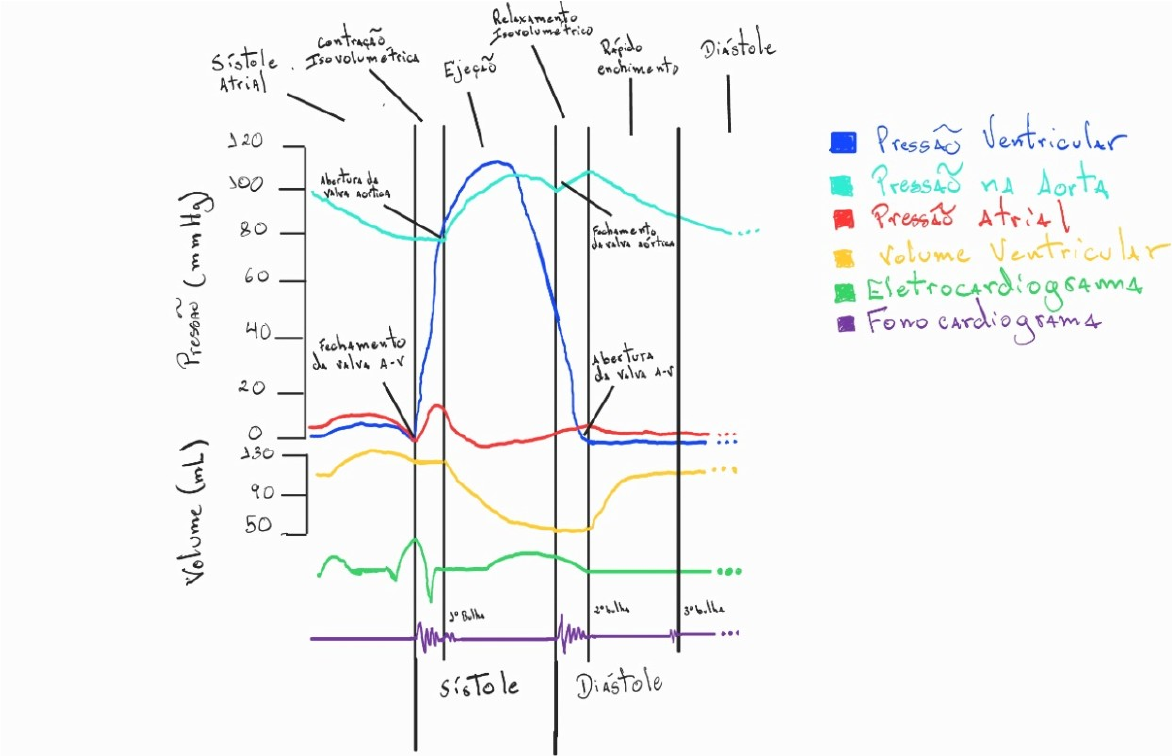 Sístole
Atrial
Contração
Isovolumétrica
Ejeção
Relaxamento
Isovolumétrico
Rápido
enchimento
Diástole
Pressão (mmHg)
120
100
80
60
40
20
0
Abertura da
valva aórtica
Fechamento
da valva aórtica
Fechamento
da valva A-V
Abertura
da valva A-V
Volume (mL)
130
90
50
1º Bulha
2º bulha
3º bulha
Sístole
Diástole
Pressão Ventricular
Pressão na Aorta
Pressão Atrial
Volume Ventricular
Eletrocardiograma
Fonocardiograma